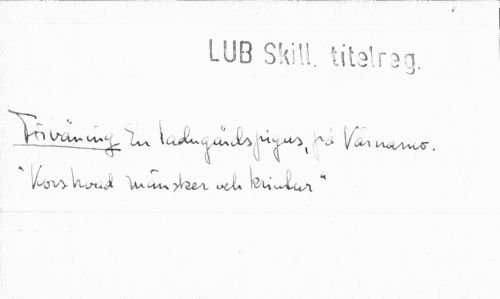 LUB Skill. titelreg.
Försvaning En ladugårdspigas, på Värnamo.
"Kors hvad mänsker och kriatur"